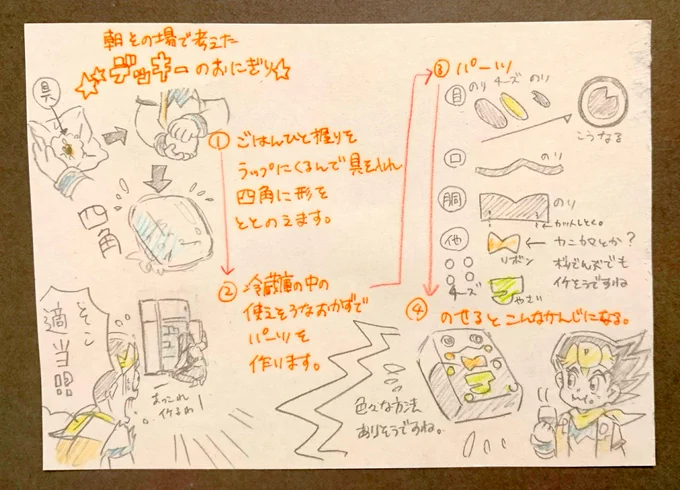 朝その場で考えた
デッキーのおにぎり
具
① ごはんひと握りを
ラップにくるんで具を入れ
四角に形を
ととのえます。
四角
② 冷蔵庫の中の
使えそうなおかずで
パーツを
作ります。
そこし
適当唱
あっこれ
イケるわ!
③ パーツ
目 のり チーズ のり
こうなる
口 のり
胴 のり
カットしとく。
他 リボン ← カニカマとか?
ボリだんズでも
イケそうですね
チーズ やさい
④ のせるとこんなかんじになる。
色々な方法
ありそうですね。
P